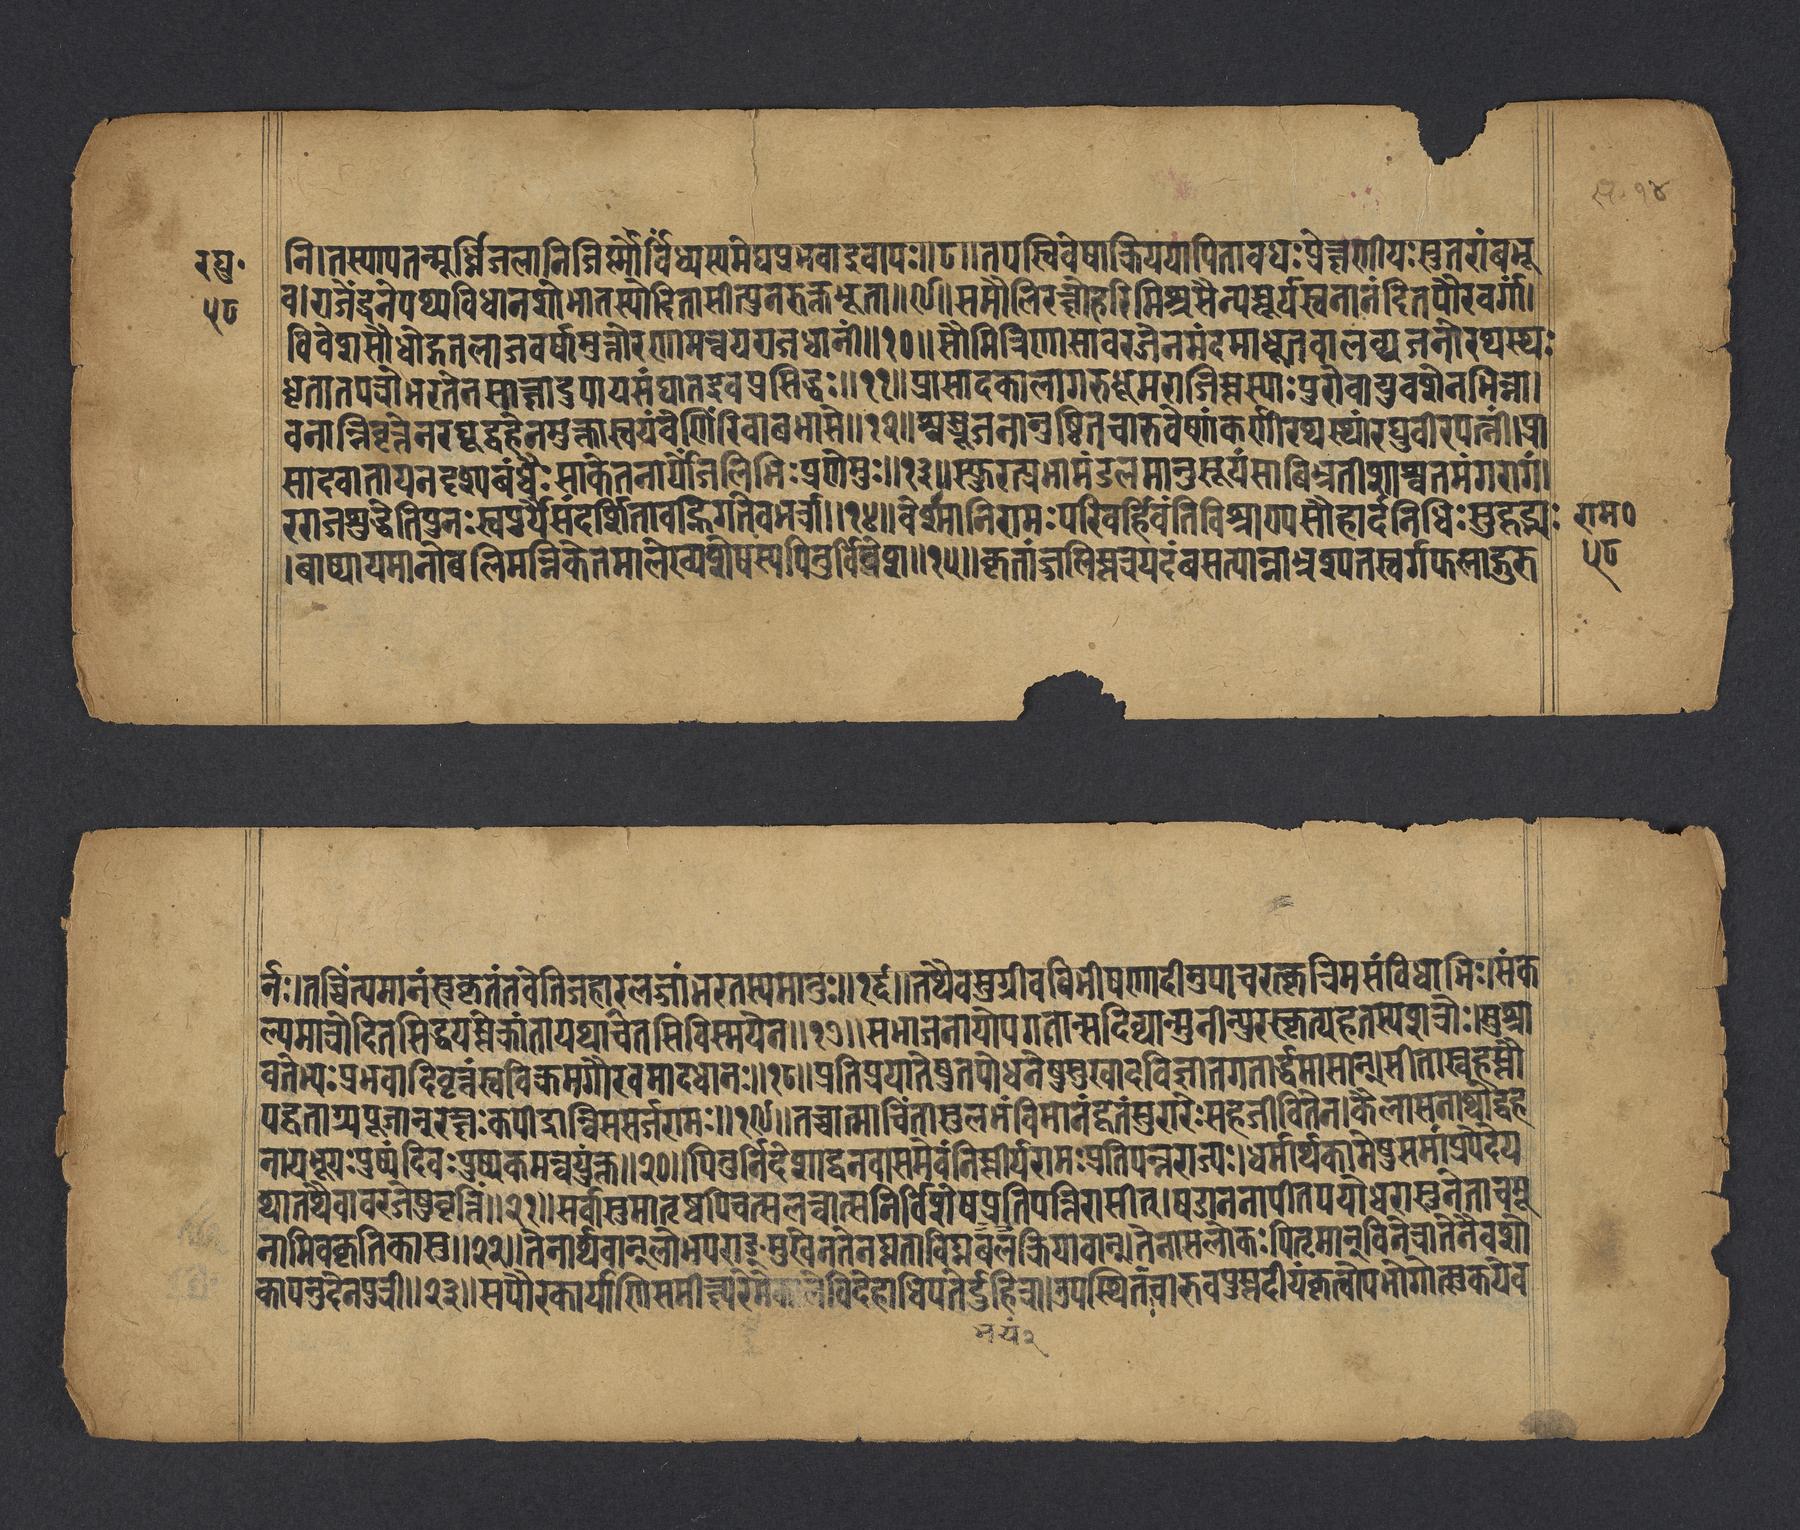 स॰ १४
रघु॰
५८
नि।तस्यापतन्मूर्ध्निजलानिजिस्मोर्विंध्यस्यमेघप्रभवाइवापः॥८॥तपस्विवेषाक्रिययापितावद्यःप्रेक्षणीयःसुतरांबभू
व।राजेंद्रनेपथ्यविधानशोभातस्योदितासीत्पुनरुक्तभूता॥९॥समौलिरक्षोहरिमिश्रसैन्यस्तूर्यस्वनानंदितपौरवर्गः।
विवेशसौधोद्गतलाजवर्षामुत्तोरणामन्वयराजधानीं॥१०॥सौमित्रिणासावरजेनमंदमाधूतवालव्यजनोरथस्थः
धृतातपत्रोभरतेनसाक्षादुपायसंघातइवप्रसिद्धः॥११॥प्रासादकालागरुधूमराजिस्तस्याःपुरोवायुवशेनभिन्ना।
वनान्निवृत्तेनरघूद्वहेनमुक्तास्वयंवेणिरिवाबभासे॥१२॥श्वश्रूजनानुष्ठितचारुवेषांकर्णीरथस्थांरघुवीरपत्नीं।प्रा
सादवातायनदृश्यबंधैःसाकेतनार्योंजलिभिःप्रणेमुः॥१३॥स्फुरत्प्रभामंडलमानुसूयंसाबिभ्रतीशाश्वतमंगरागं।
रराजशुद्धेतिपुनःस्वपुर्यैसंदर्शितावह्निगतेवभर्त्रा॥१४॥वेश्मानिरामःपरिवर्हिवंतिविश्राण्यसौहार्दनिधिःसुहृद्भ्यः
।बाष्पायमानोबलिमन्निकेतमालेख्यशेषस्यपितुर्विवेश॥१५॥कृतांजलिस्तत्रयदंबसत्यान्नाभ्रश्यतस्वर्गफलाद्गुरु
राम०
५८
र्नः।तच्चिंत्यमानंसुकृतंतवेतिजहारलज्जांभरतस्यमातुः॥१६॥तथैवसुग्रीवविभीषणादीनुपाचरत्कृत्रिमसंविधाभिः।संक
ल्पमात्रोदितसिद्धयस्तेक्रांतायथाचेतसिविस्मयेन॥१७॥सभाजनायोपगतान्सदिव्यान्मुनीन्पुरस्कृत्यहतस्यशत्रोः।सुश्रा
वतेभ्यःप्रभवादिवृत्तंस्वविक्रमेगौरवमादधानः॥१८॥प्रतिप्रयातेषुतपोधनेषुसुखादविज्ञातगतार्द्धमासान्।सीतास्वहस्तो
पहृताग्र्यपूजान्रक्षःकपींद्रान्विससर्जरामः॥१९॥तच्चात्मचिंतासुलभंविमानंहृतंसुरारेःसहजीवितेन।कैलासनाथोद्वह
नायभूयःपुष्पंदिवःपुष्पकमन्वयुंक्त॥२०॥पितुर्निदेशाद्वनवासमेवंनिस्तीर्यरामःप्रतिपन्नराज्यः।धर्मार्थकामेषुसमांप्रपेदेय
थातथैवावरजेषुवृत्तिं॥२१॥सर्वासुमातृष्वपिवत्सलत्वात्सनिर्विशेषप्रतिपत्तिरासीत्।षडाननापीतपयोधरासुनेताचमू
नामिवकृत्तिकासु॥२२॥तेनार्थवान्लोभपराङ्मुखेनतेनघ्नताविघ्नबलंक्रियावान्।तेनासलोकःपितृमान्विनेत्रातेनैवशो
कापनुदेनपुत्री॥२३॥सपौरकार्याणिसमीक्ष्यरेमेकालेविदेहाधिपतेर्दुहित्रा।उपस्थितंचारुवपुस्तदीयंकृत्वोपभोगोत्सुकयेव